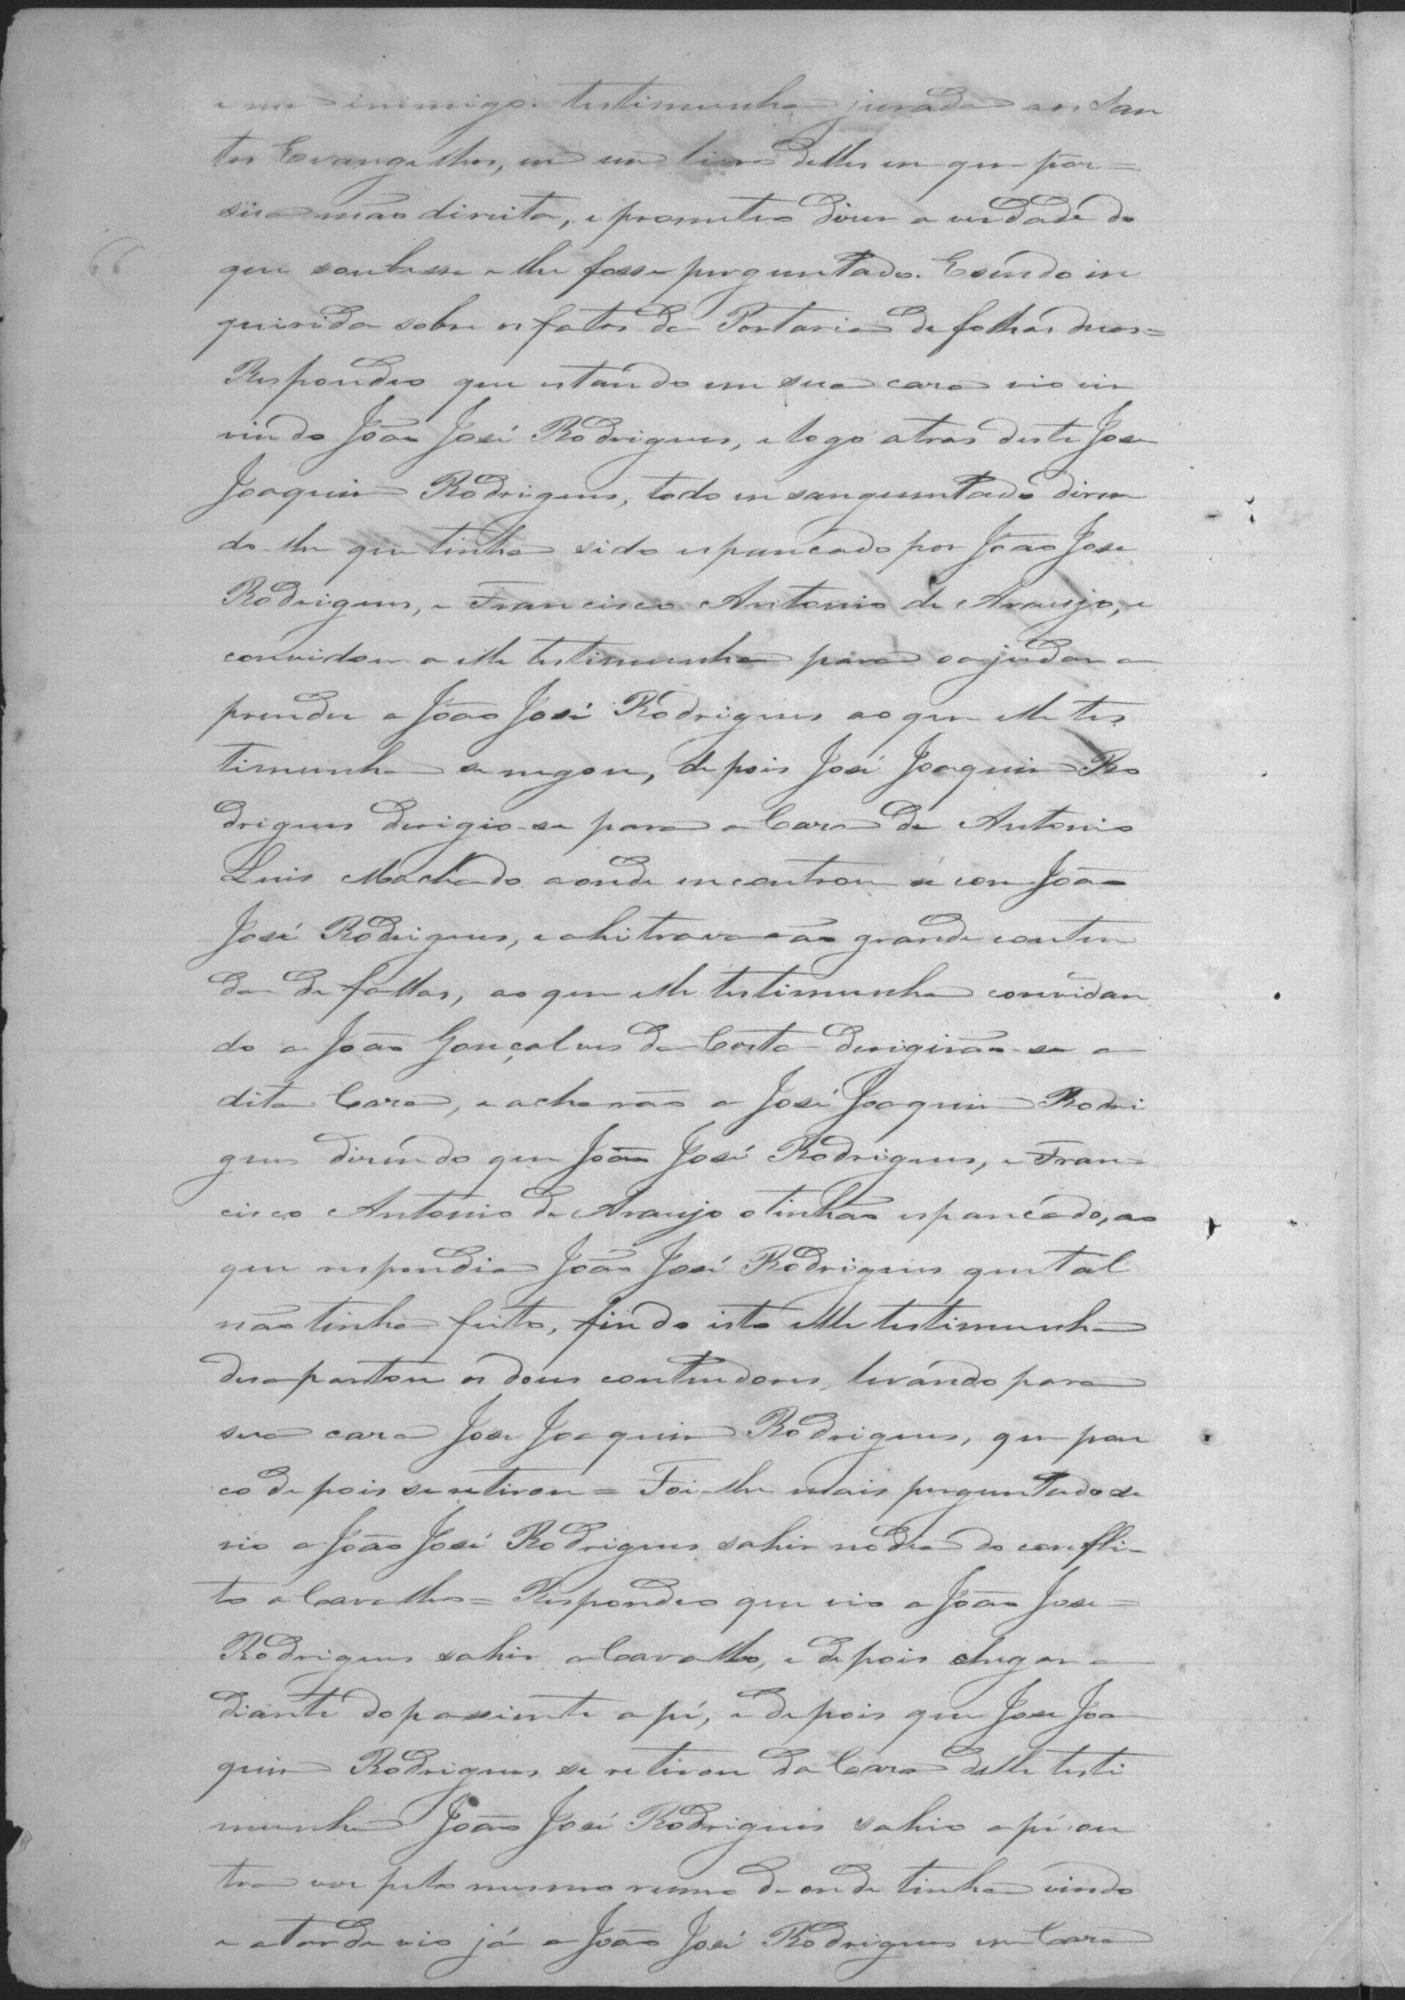 e nem inimigo: testimunha jurada aos San
tos Evangelhos, em um livro delles em que pôr=
sua mão direita, e prometeo dizer a verdade do
que soubesse e lhe fosse perguntado. E sendo in
quirida sobre os fatos da Portaria de folhas duas=
Respondeo que estando em sua caza vio vir
vindo João José Rodrigues, e logo atras deste José
Joaquim Rodrigues, todo ensanguentado dizen
do-lhe que tinha sido espancado por João José
Rodrigues, e Francisco Antonio de Araujo, e
convidou a elle testimunha para o ajudar a
prender a João José Rodrigues ao que elle tes
timunha se negou, depois José Joaquim Ro
drigues derigio-se para a Caza de Antonio
Luis Machado aonde encontrou se com João
José Rodrigues, e ahi travarão grande conten
da de fallas, ao que elle testimunha convidan
do a João Gonçalves da Costa derigirão-se a
dita Caza, e acharão a José Joaquim Rodri
gues dizendo que João José Rodrigues, e Fran=
cisco Antonio de Araujo o tinhão espancado, ao
que respondia João José Rodrigues que tal
não tinha feito, findo isto elle testimunha
desapartou os dous contendores, levando para
sua caza José Joaquim Rodrigues, que pou
co depois se retirou = Foi-lhe mais perguntado se
vio a João José Rodrigues sahir no dia do confli-
to a Cavallo = Respondeo que vio a João José=
Rodrigues sahir a Cavallo, e depois chegar a
diante do pasiente a pé, e depois que José Joa
quim Rodrigues se retirou da Caza delle testi
munha João José Rodrigues sahio a pé ou
tra vez pelo mesmo rumo de onde tinha vindo
e a tarde vio já a João José Rodrigues em Caza